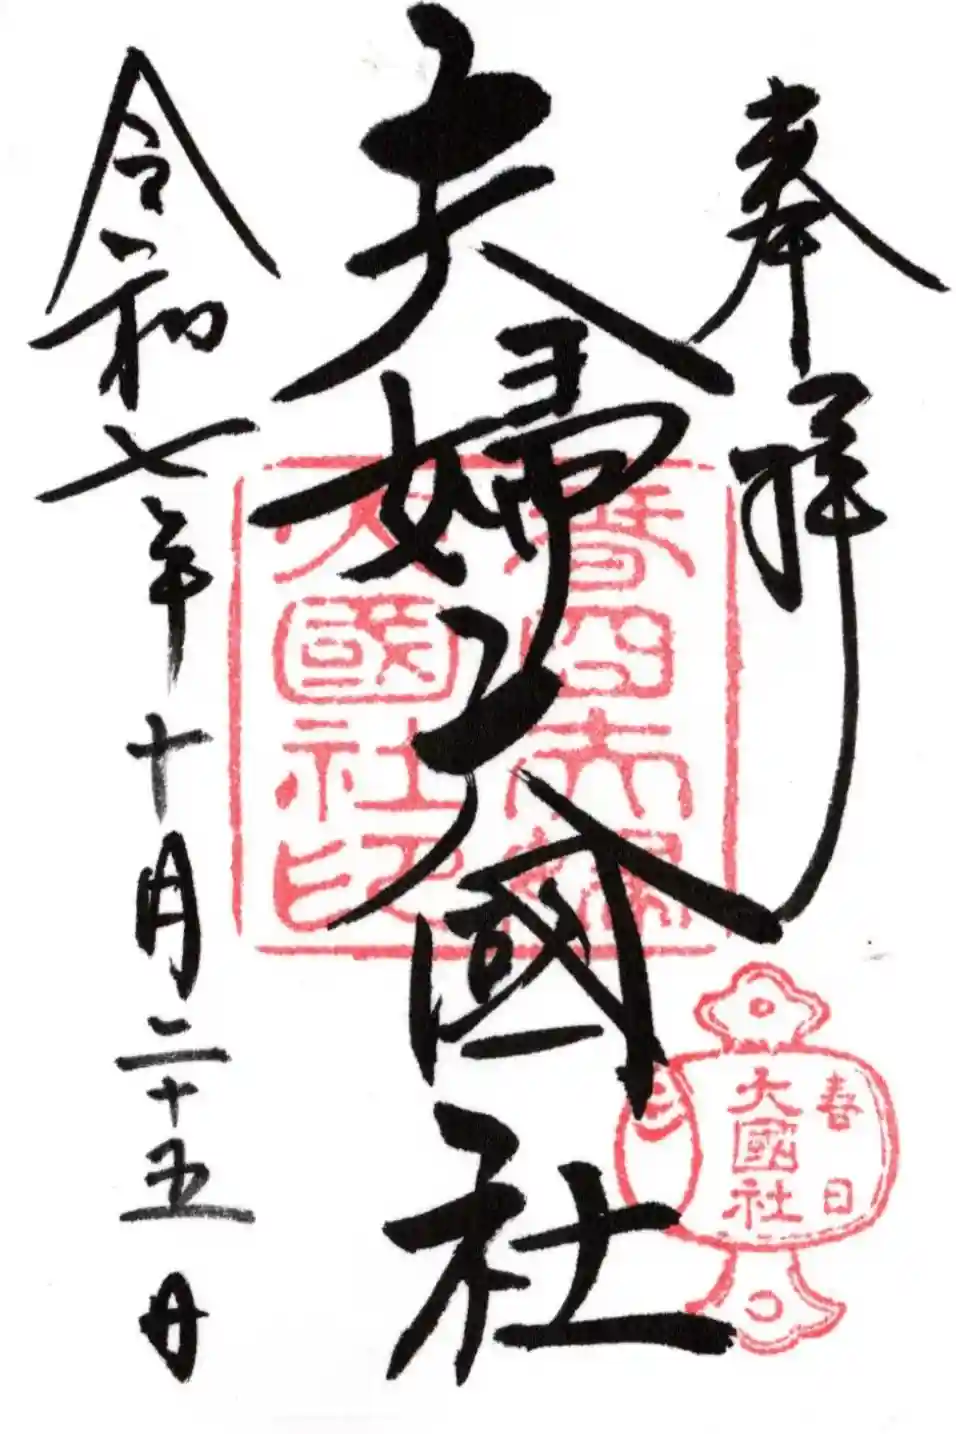 奉拝
夫婦大國社
令和七年十月二十五日
春日大社
大國社印
春日
大國社